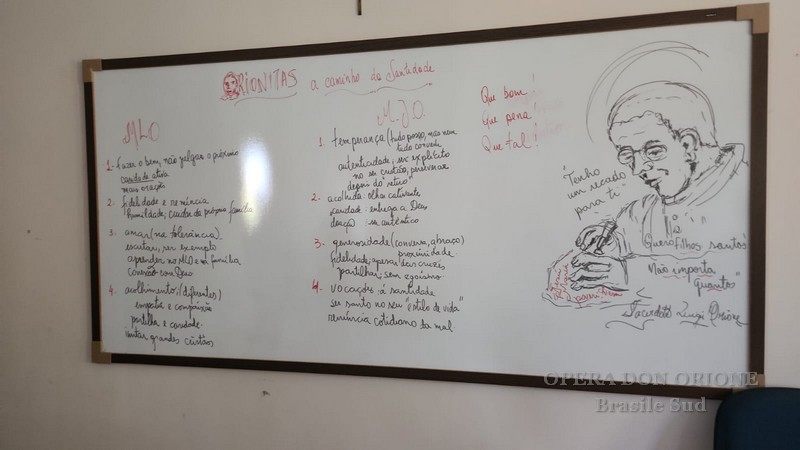 ORIONITAS a caminho da Santidade
MLO
1. Fazer o bem, não julgar o próximo
caridade ativa
mais oração
2. fidelidade e renúncia
humildade, cuidar da própria família
3. amar (na tolerância)
escutar, ser exemplo
aprender no MLO e em família
conversão com Deus
4. acolhimento, (diferentes)
empatia e compaixão
partilha e caridade
imitar grandes cristãos
M.J.O.
1 temperança (tudo posso, mas nem
tudo convém
autenticidade: ser explícito
no ser cristão, perseverar
depois do "retiro"
2. acolhida: olhar cativante,
caridade entrega a Deus
doação ser autêntico
3. generosidade (conversa, abraço)
proximidade
fidelidade, apesar das cruzes
partilhar, sem egoísmo
4. vocações à santidade
ser santo no seu "estilo de vida"
renúncia cotidiana do mal
Que bom!
Que pena!
Que tal!
"Tenho
um recado
para ti"
Quero filhos santos
Não importa
quantos"
Sacerdote Luigi Orione
OPERA DON ORIONE
Brasile Sud